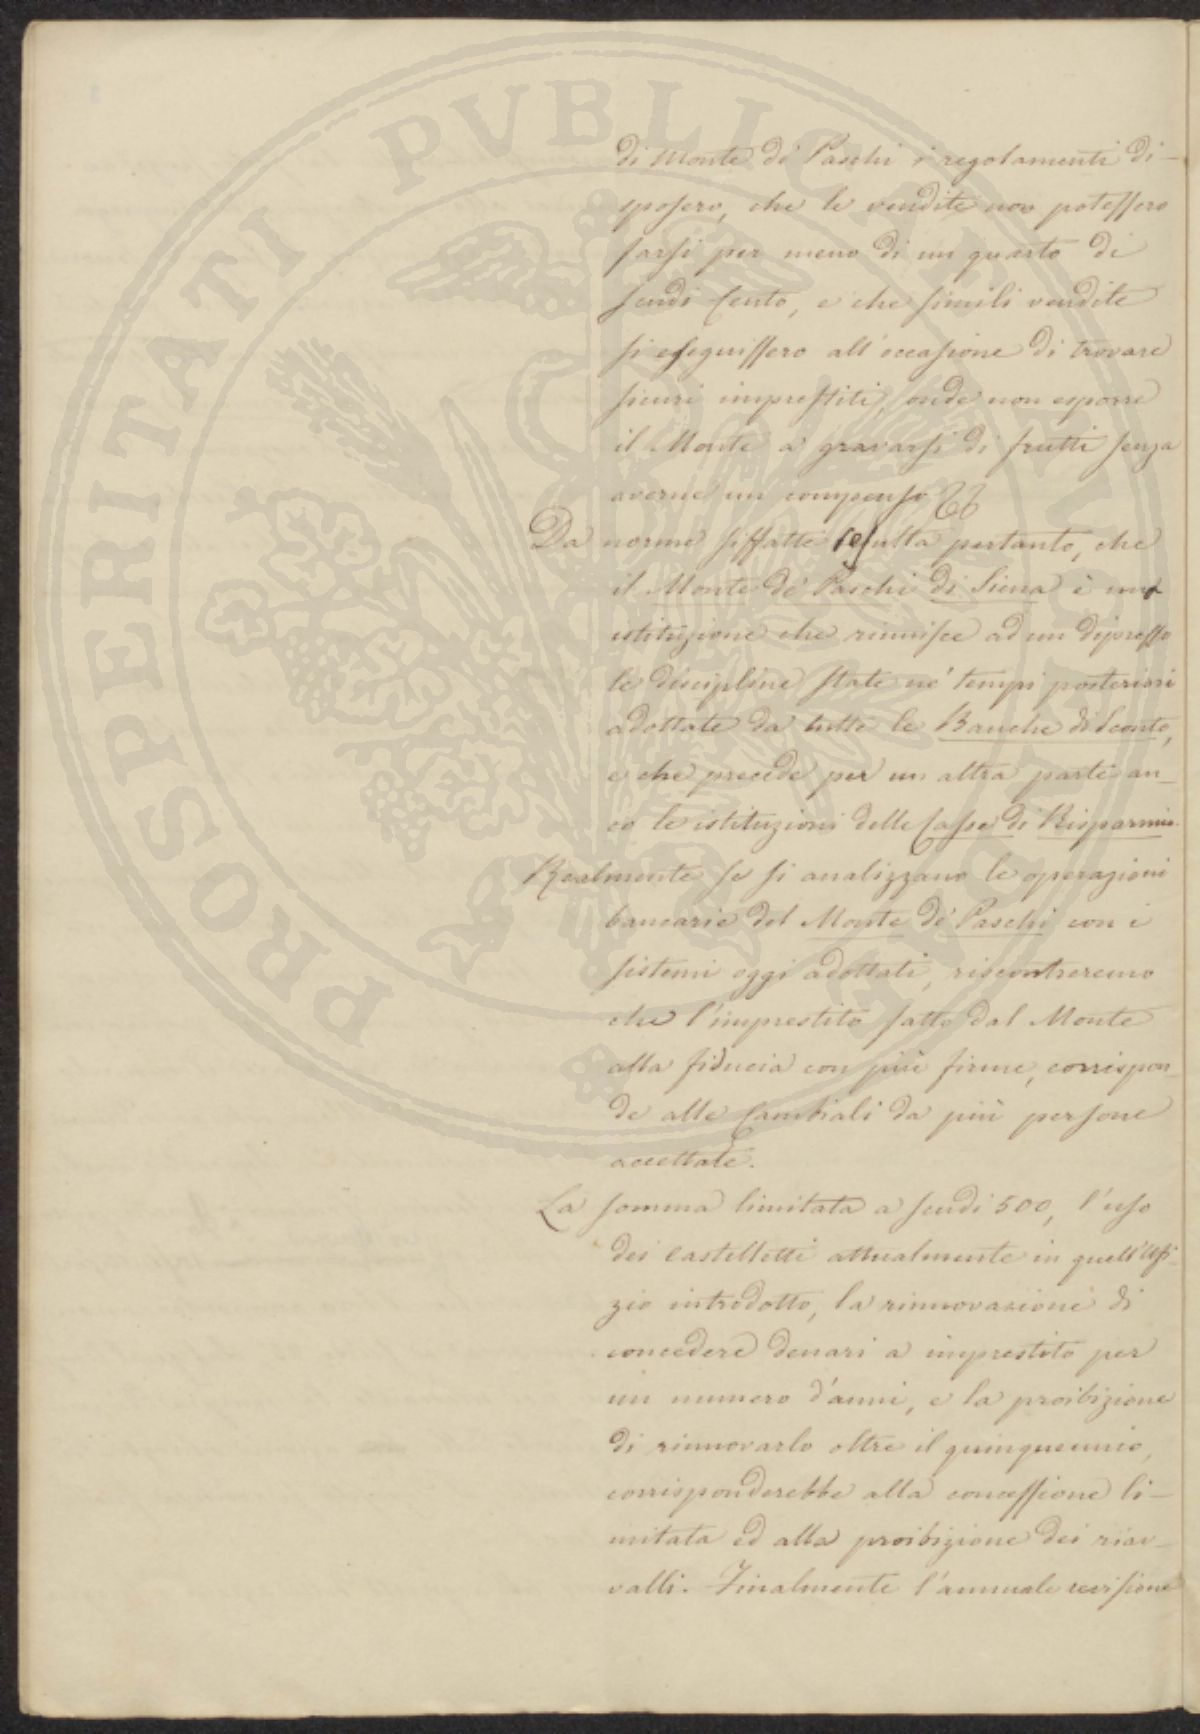 di Monte de' Paschi i regolamenti di-
sposero, che le vendite non potessero
farsi per meno di un quarto di
scudi Cento, e che simili vendite
si eseguissero all'occasione di trovare
sicuri imprestiti, onde non esporre
il Monte a gravarsi di frutti senza
averne un compenso
Da norme siffatte resulta pertanto, che
il Monte de' Paschi di Siena è una
istituzione che riunisce ad un dipresso
le discipline state ne' tempi posteriori
adottate da tutte le Banche di Sconto,
e che precede per un altra parte an-
co le istituzioni delle Casse di Risparmio.
Realmente se si analizzano le operazioni
bancarie del Monte de' Paschi con i
sistemi oggi adottati, riscontreremo
che l'imprestito fatto dal Monte
alla fiducia con più firme, corrispon-
de alle Cambiali da più persone
accettate.
La somma limitata a scudi 500, l'uso
dei castelletti attualmente in quell'Ufi-
zio introdotto, la rinnovazione di
concedere denari a imprestito per
un numero d'anni, e la proibizione
di rinnovarlo oltre il quinquennio,
corrisponderebbe alla concessione li-
mitata ed alla proibizione dei riav-
valli. Finalmente l'annuale revisione
PROSPERITATI PVBLICAE